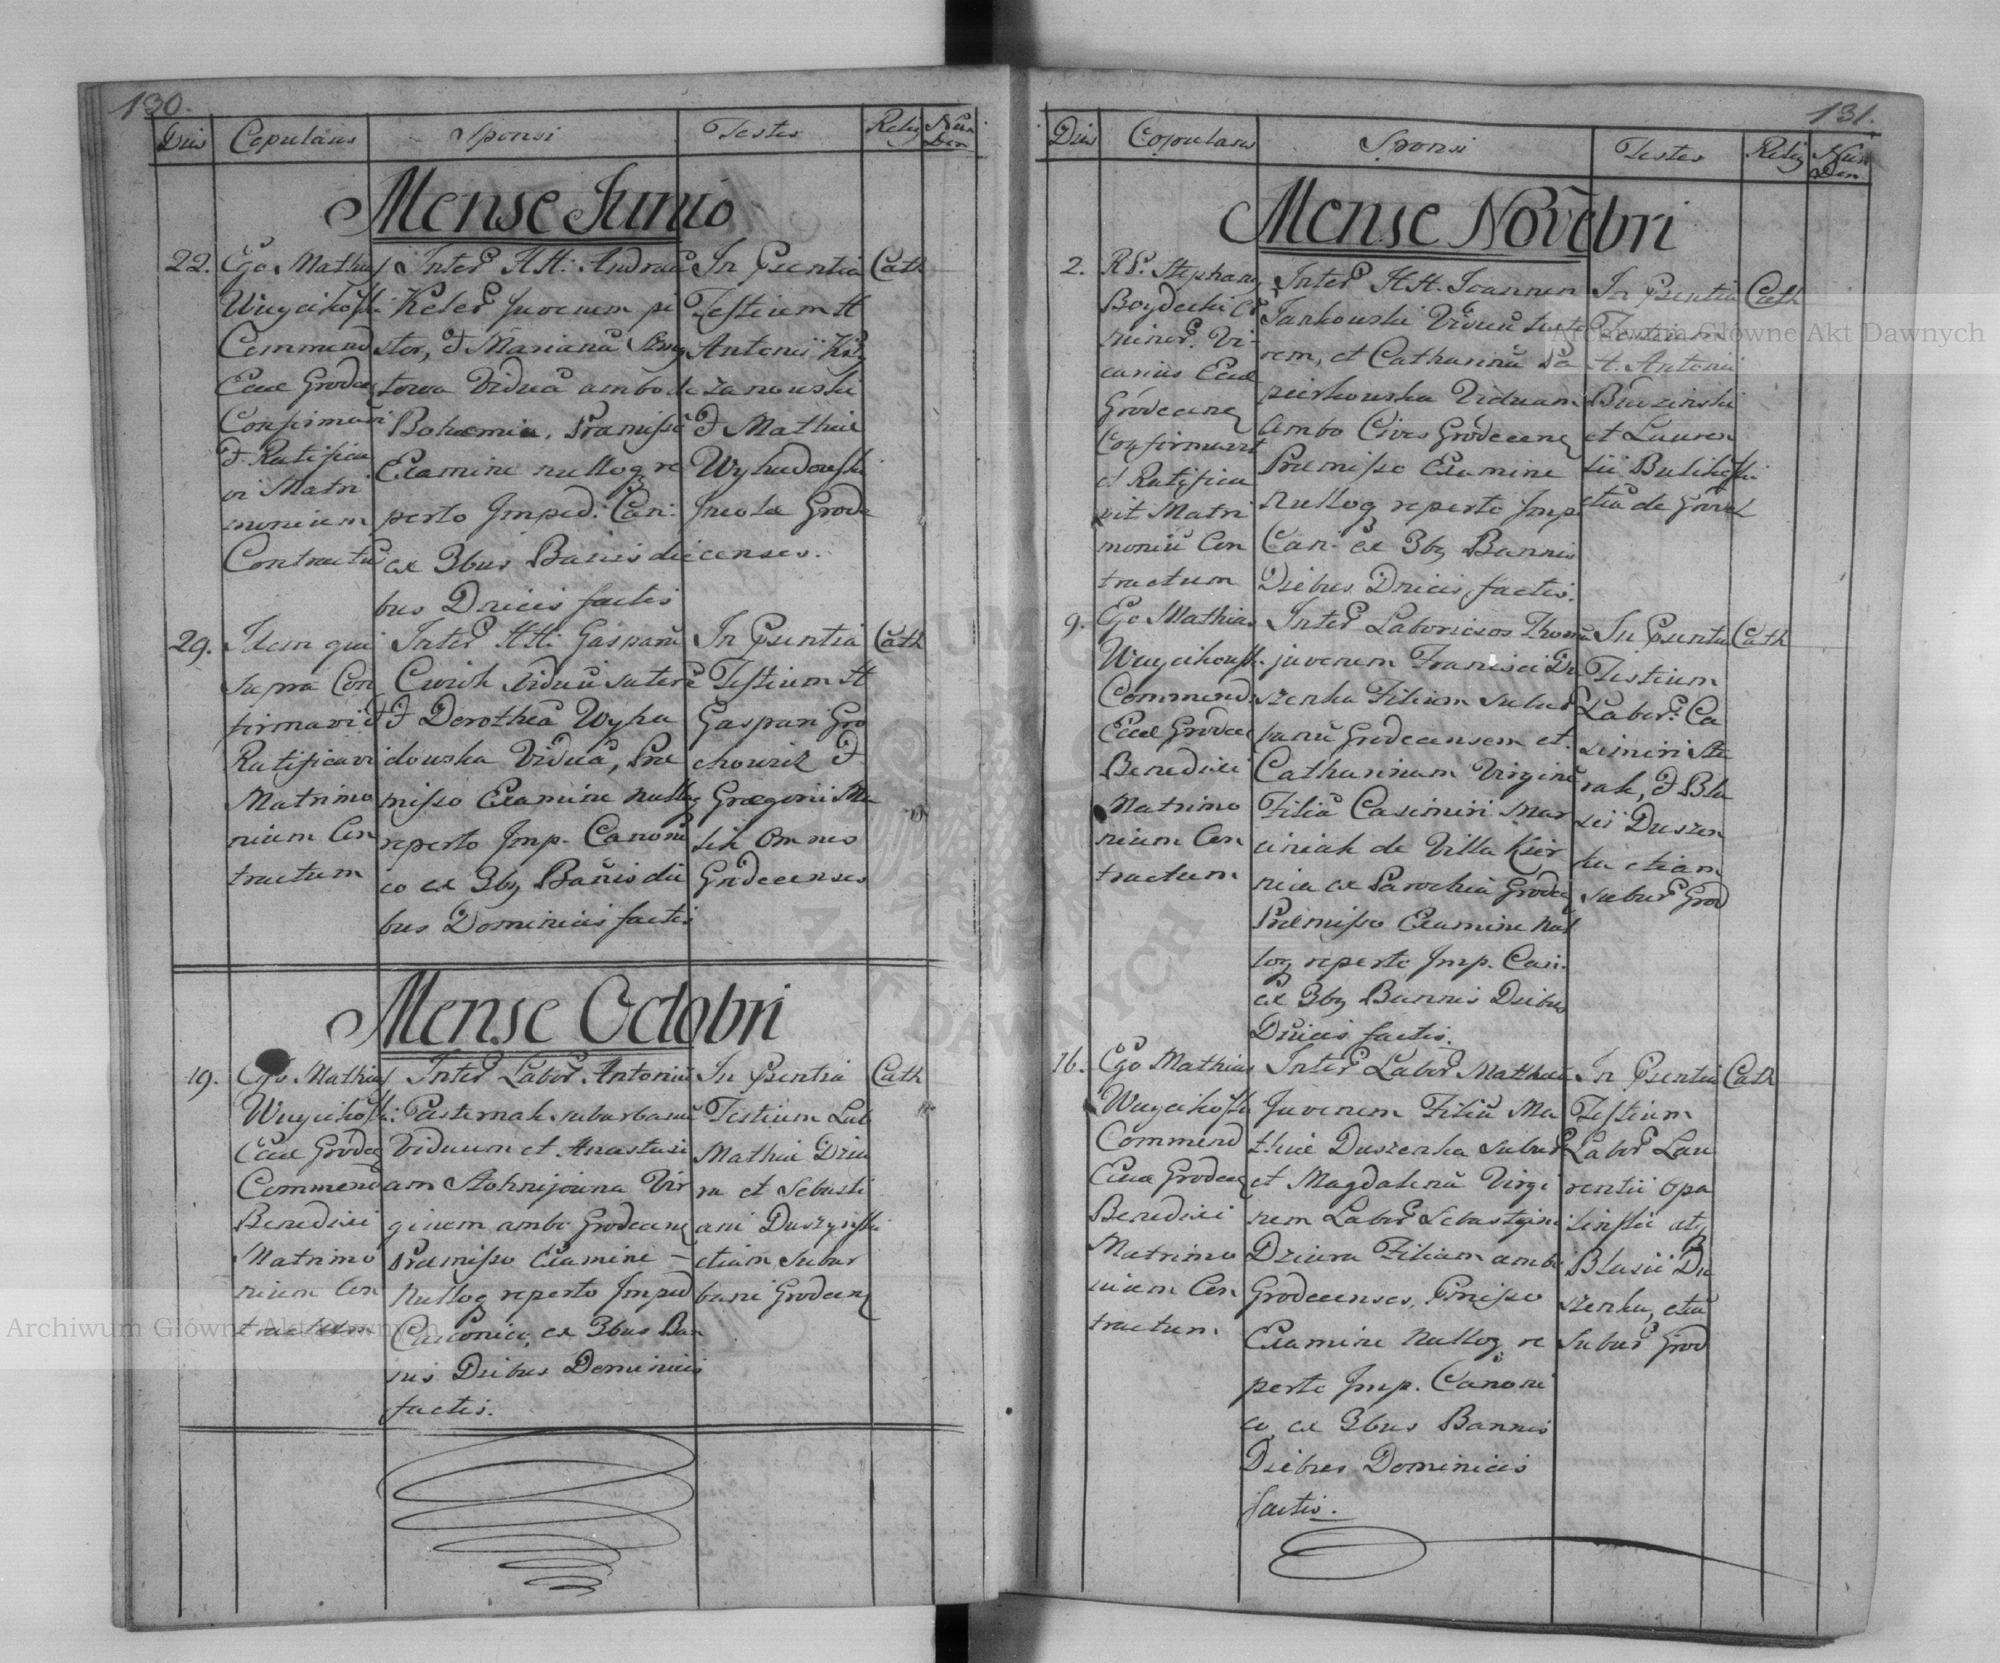 130.
Dies Copulans Sponsi Testes Relig Num Dom
Mense Junio
22. Ego Mathias
Wuycikowski
Commend
Eccl Grodec
Confirmavi
& Ratifica
vi Matri
monium
Contractũ
Inter HH: Andreã
Keler Juvenem pi
stor, & Marianã
towa Viduã ambo de
Bohemia, Præmisso
Examine nulloq re
perto Imped: Can:
ex 3bus Banis die
bus Dnicis factis
In Psentia
Testium H
Antonii Krzy
zanowski
& Mathiæ
Wyhadowski
Incolæ Grode
censes.
Cath
29. Idem qui
supra Con
firmavi &
Ratificavi
Matrimo
nium Con
tractum
Inter HH: Gasparũ
Cwiok Viduũ sutorẽ
& Dorotheã Wyha
dowska Viduã, Præ
misso Examine nulloq
reperto Imp. Canoni
co ex 3bq Banis die
bus Dominicis factis
In Psentia
Testium H
Gaspari Gro
chowicz &
Gregorii Ma
sik Omnes
Grodecenses
Cath
Mense Octobri
19. Ego Mathias
Wuycikowski
Eccl Grodec
Commend
Benedixi
Matrimo
nium Con
tractum
Inter Labor. Antoniũ
Pasternak suburbanũ
Viduum et Anastasi
am Stohnijowna Vir
ginem ambo Grodecens
Præmisso Examine
Nulloq reperto Imped
Canonico, ex 3bus Ban
nis Diebus Dominicis
factis.
In Psentia
Testium Lab
Mathiæ Dziu
ra et Sebasti
ani Duszynski
etiam Subur
bani Grodecens
Cath
131.
Dies Copulans Sponsi Testes Relig Num Dom
Mense Novẽbri
2. RP. Stephanus
Boydecki Or
Minor. Vi
carius Eccl
Grodecens
Confirmavit
et Ratifica
vit Matri
moniũ Con
tractum
Inter HH. Joannem
Jankowski Viduũ suto
rem, et Catharinã Pa
pierkowska Viduam
Ambo Cives Grodecens
Præmisso Examine
Nulloq reperto Imp
Can. ex 3bq Bannis
Diebus Dnicis factis.
In Psentia
Testium
H. Antonii
Buczinski
et Lauren
tii Bulikowski
etiã de Grodek
Cath
9. Ego Mathias
Wuycikowski
Commend
Eccl Grodec
Benedixi
Matrimo
nium Con
tractum
Inter Laboriosos Thomã
juvenem Francisci Du
szenka Filium subur
banũ Grodecensem et
Catharinam Virginẽ
Filiã Casimiri Mar
ciniak de Villa Kier
nica ex Parochia Grodec
Præmisso Examine Nul
loq reperto Imp. Can.
ex 3bq Bannis Diebus
Dnicis factis.
In Psentia
Testium
Labor. Ca
simiri Ste
rak, & Bla
sii Duszen
ka etiam
subur Grod
Cath
16. Ego Mathias
Wuycikowski
Commend
Eccl Grodec
Benedixi
Matrimo
nium Con
tractum
Inter Labor Mathiã
Juvenem Filiũ Ma
thiæ Duszenka subur
et Magdalenã Virgi
nem Labor Sebastyani
Dziura Filiam ambo
Grodecenses, Pmisso
Examine Nulloq re
perto Imp. Canoni
co, ex 3bus Bannis
Diebus Dominicis
factis.
In Psentia
Testium
Labor Lau
rentii Opa
linski atq
Blasii Du
szenka, etiã
subur Grod
Cath
Archiwum Główne Akt Dawnych
Archiwum Główne Akt Dawnych